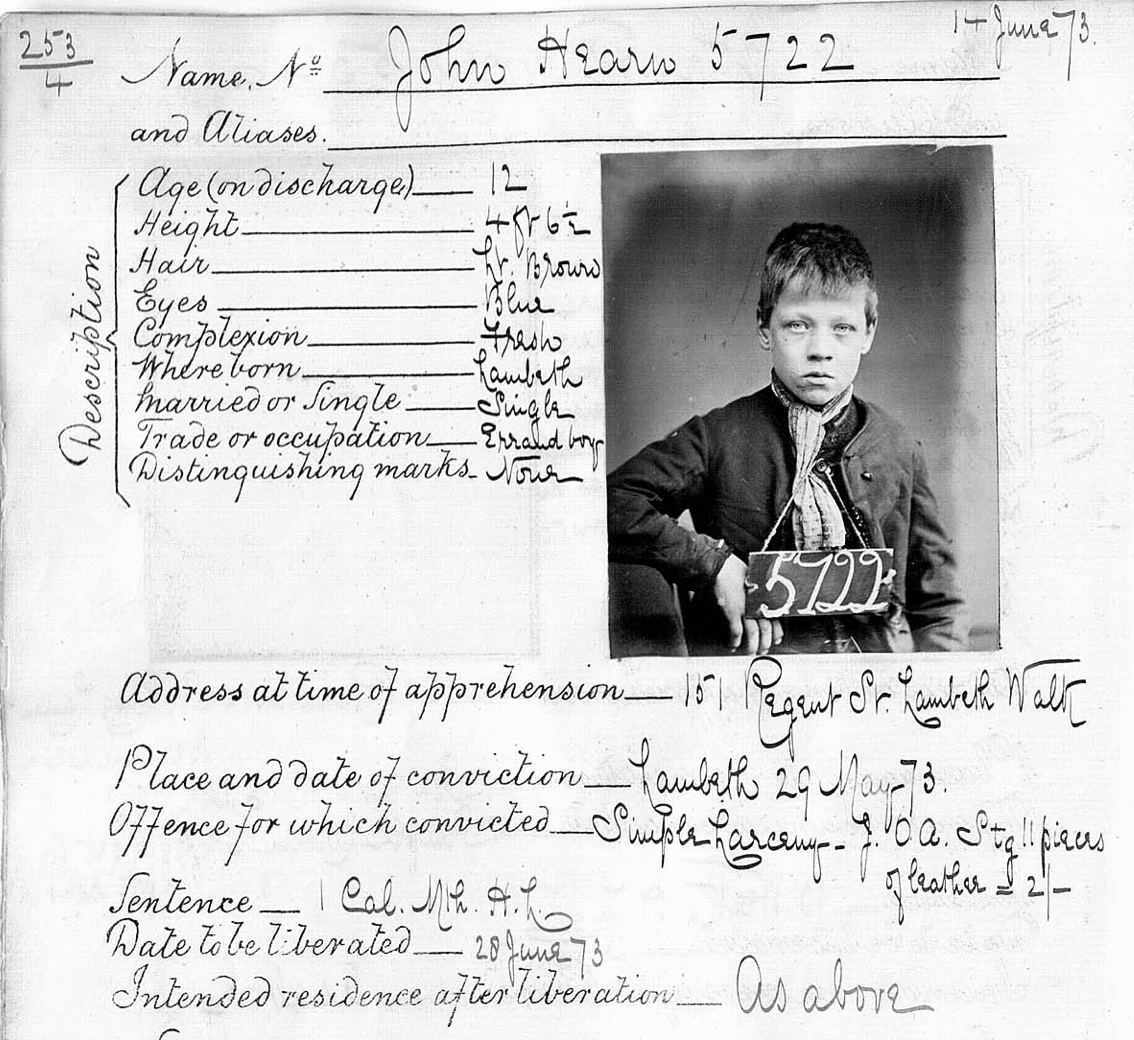 253
4
14 June 73.
Name, Nº John Hearn 5722
and Aliases.
Description
Age (on discharge) 12
Height 4 ft 6½
Hair Lt. Brown
Eyes Blue
Complexion Fresh
Where born Lambeth
Married or Single Single
Trade or occupation Errand boy
Distinguishing marks None
5722
Address at time of apprehension 151 Regent St. Lambeth Walk
Place and date of conviction Lambeth 29 May 73.
Offence for which convicted Simple Larceny - J. O A. Stg 11 pieces
of leather = 2/-
Sentence 1 Cal. Mth. H. L.
Date to be liberated 28 June 73
Intended residence after liberation As above